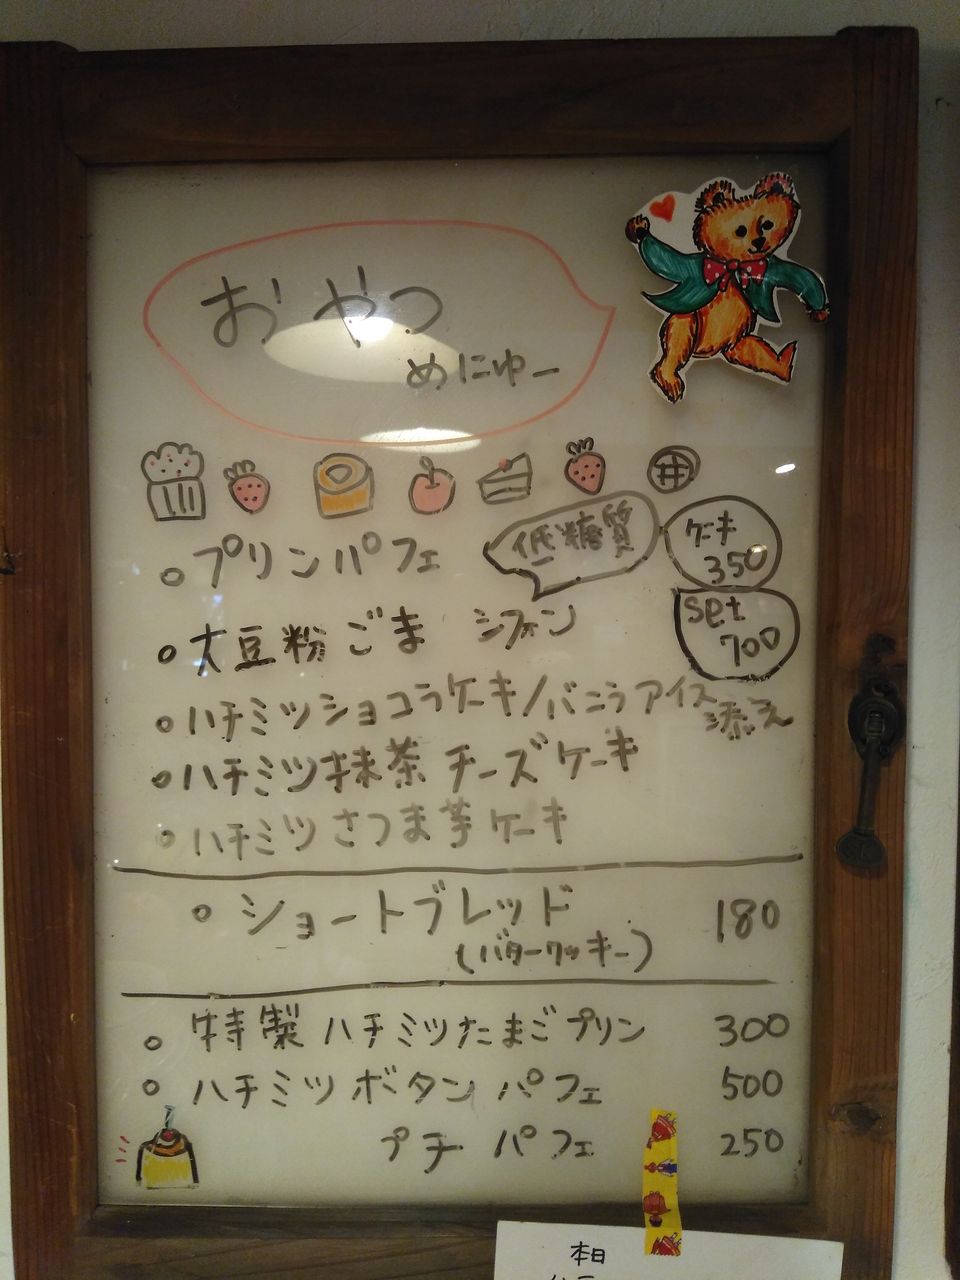 おやつ
めにゅー
プリンパフェ
低糖質
ケーキ
350
set
700
大豆粉ごま シフォン
ハチミツショコラケーキ/バニラアイス添え
ハチミツ抹茶チーズケーキ
ハチミツさつま芋ケーキ
ショートブレッド 180
(バタークッキー)
特製ハチミツたまごプリン 300
ハチミツボタンパフェ 500
プチパフェ 250
本日